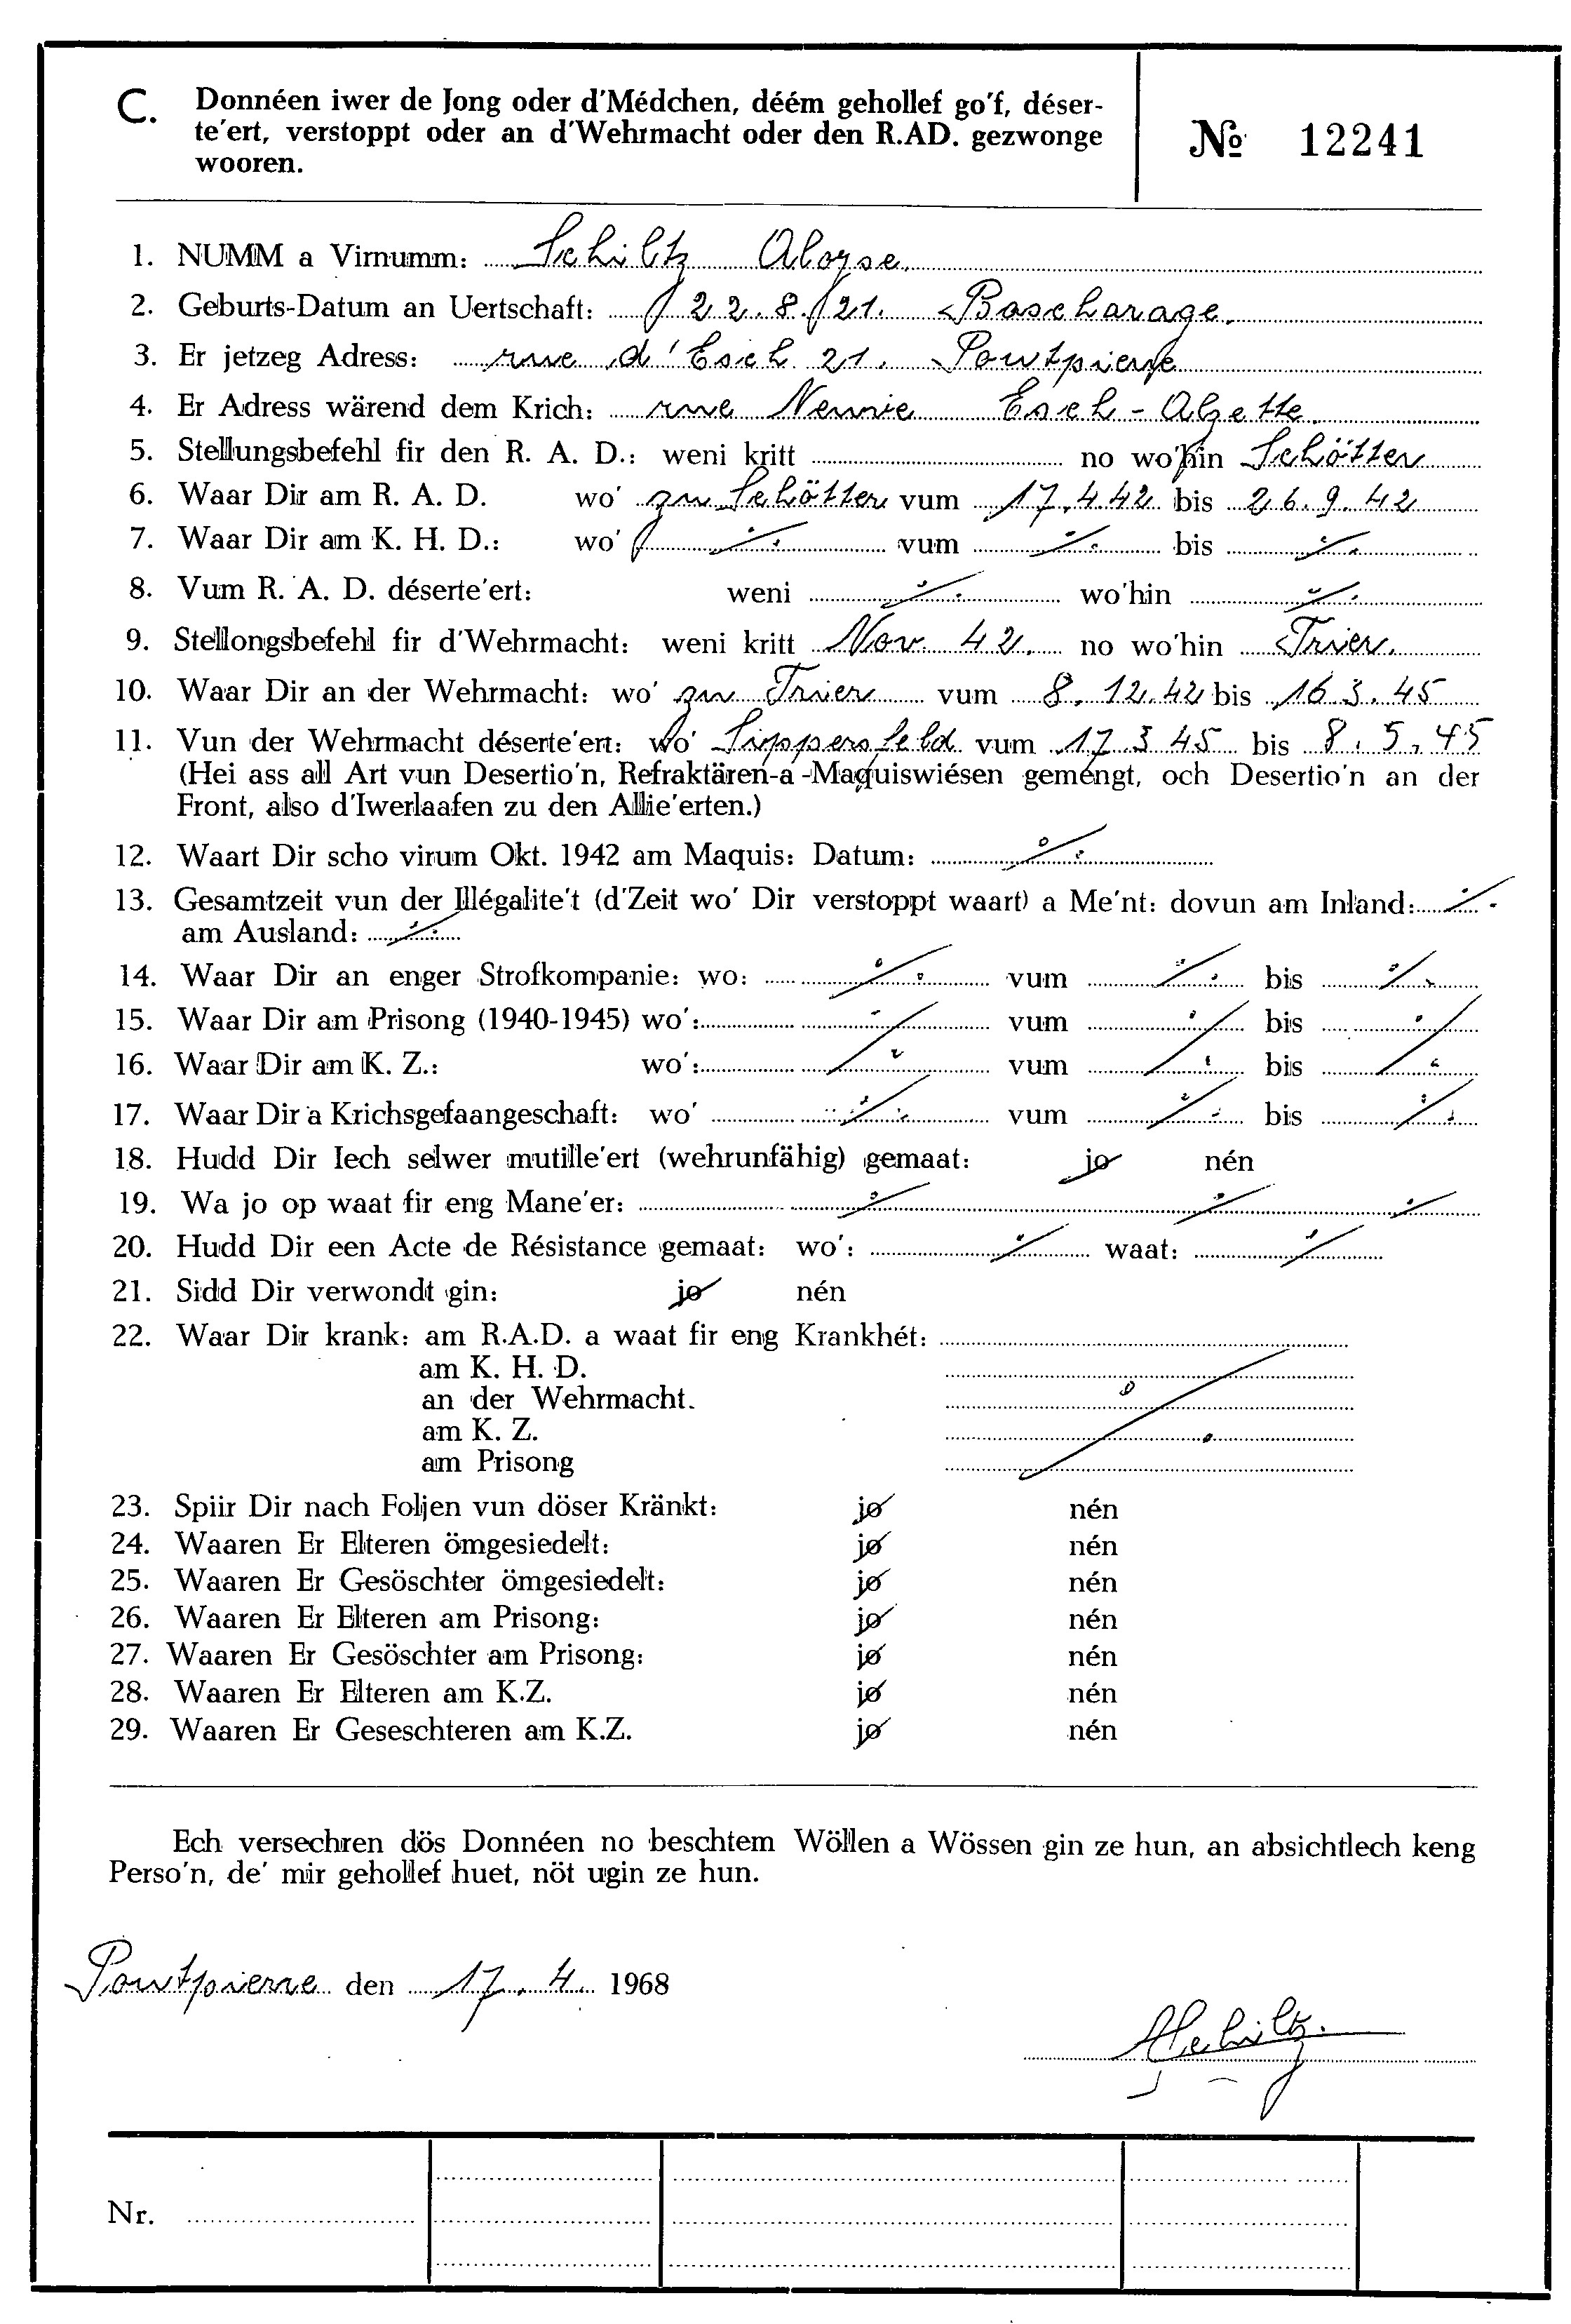 C. Donnéen iwer de Jong oder d'Médchen, déém gehollef go'f, déser-
te'ert, verstoppt oder an d'Wehrmacht oder den R.AD. gezwonge
wooren.
№ 12241
1. NUMM a Virnumm: Schiltz Aloyse.
2. Geburts-Datum an Uertschaft: 22.8.21. Bascharage.
3. Er jetzeg Adress: rue d'Esch 21. Pontpierre
4. Er Adress wärend dem Krich: rue Esch-Alzette.
5. Stellungsbefehl fir den R. A. D.: weni kritt no wo'hin Schötter
6. Waar Dir am R. A. D. wo' zu Schötter vum 17.4.42 bis 26.9.42
7. Waar Dir am K. H. D.: wo' ./. vum ./. bis ./.
8. Vum R. A. D. déserte'ert: weni ./. wo'hin ./.
9. Stellongsbefehl fir d'Wehrmacht: weni kritt Nov. 42. no wo'hin Trier.
10. Waar Dir an der Wehrmacht: wo' zu Trier vum 8.12.42 bis 16.3.45
11. Vun der Wehrmacht déserte'ert: wo' Sippersfeld vum 17.3.45 bis 8.5.45
(Hei ass all Art vun Desertio'n, Refraktären-a-Maquiswiésen geméngt, och Desertio'n an der
Front, also d'Iwerlaafen zu den Allie'erten.)
12. Waart Dir scho virum Okt. 1942 am Maquis: Datum: ./.
13. Gesamtzeit vun der Illégalite't (d'Zeit wo' Dir verstoppt waart) a Me'nt: dovun am Inland: ./.
am Ausland: ./.
14. Waar Dir an enger Strofkompanie: wo: ./. vum ./. bis ./.
15. Waar Dir am Prisong (1940-1945) wo': ./. vum ./. bis ./.
16. Waar Dir am K. Z.: wo': ./. vum ./. bis ./.
17. Waar Dir a Krichsgefaangeschaft: wo' ./. vum ./. bis ./.
18. Hudd Dir Iech selwer mutille'ert (wehrunfähig) gemaat: jo nén
19. Wa jo op waat fir eng Mane'er: ./. ./. ./.
20. Hudd Dir een Acte de Résistance gemaat: wo': ./. waat: ./.
21. Sidd Dir verwondt gin: jo nén
22. Waar Dir krank: am R.A.D. a waat fir eng Krankhét:
am K. H. D.
an der Wehrmacht. ./.
am K. Z.
am Prisong
23. Spiir Dir nach Foljen vun döser Kränkt: jo nén
24. Waaren Er Elteren ömgesiedelt: jo nén
25. Waaren Er Gesöschter ömgesiedelt: jo nén
26. Waaren Er Elteren am Prisong: jo nén
27. Waaren Er Gesöschter am Prisong: jo nén
28. Waaren Er Elteren am K.Z. jo nén
29. Waaren Er Geseschteren am K.Z. jo nén
Ech versechren dös Donnéen no beschtem Wöllen a Wössen gin ze hun, an absichtlech keng
Perso'n, de' mir gehollef huet, nöt ugin ze hun.
Pontpierre den 17.4. 1968
ASchiltz.
Nr.